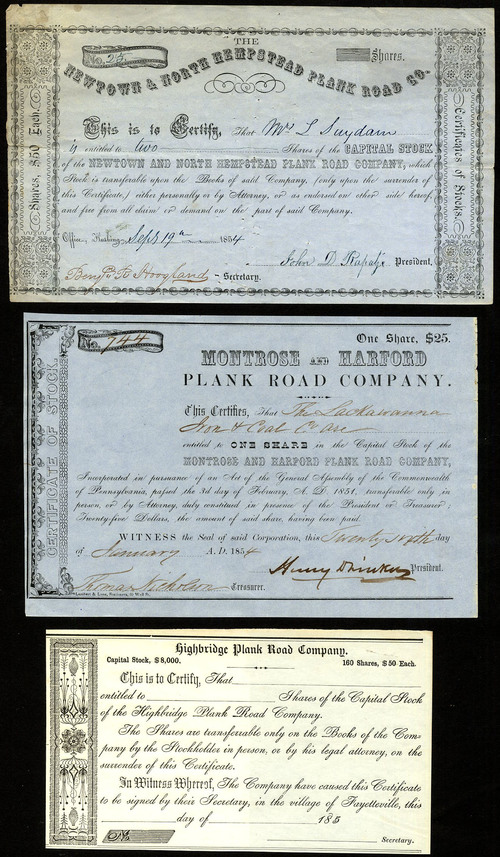 No. 25
THE
Shares.
NEWTOWN & NORTH HEMPSTEAD PLANK ROAD CO.
Shares, $50 Each.
Certificates of Stocks.
This is to Certify, That Mrs L Suydam
is entitled to two Shares of the CAPITAL STOCK
of the NEWTOWN AND NORTH HEMPSTEAD PLANK ROAD COMPANY, which
Stock is transferable upon the Books of said Company, (only upon the surrender of
this Certificate,) either personally or by Attorney, or as endorsed on other side hereof,
and free from all claim or demand on the part of said Company.
Office, Flushing, Sept 19th 1854
John D. President.
Secretary.
No. 744
One Share, $25.
MONTROSE AND HARFORD
PLANK ROAD COMPANY.
CERTIFICATE OF STOCK.
This Certifies, That The Lackawanna
Iron & Coal Co are
entitled to ONE SHARE in the Capital Stock of the
MONTROSE AND HARFORD PLANK ROAD COMPANY,
Incorporated in pursuance of an Act of the General Assembly of the Commonwealth
of Pennsylvania, passed the 3d day of February, A. D. 1851, transferable only in
person, or by Attorney, duly constituted in presence of the President or Treasurer;
Twenty-five Dollars, the amount of said share, having been paid.
WITNESS the Seal of said Corporation, this day
of January A. D. 1854
Henry Drinker President.
Nicholson Treasurer.
Highbridge Plank Road Company.
Capital Stock, $8,000.
160 Shares, $50 Each.
This is to Certify, That
entitled to Shares of the Capital Stock
of the Highbridge Plank Road Company.
The Shares are transferrable only on the Books of the Com-
pany by the Stockholder in person, or by his legal attorney, on the
surrender of this Certificate.
In Witness Whereof, The Company have caused this Certificate
to be signed by their Secretary, in the village of Fayetteville, this
day of 185
No.
Secretary.